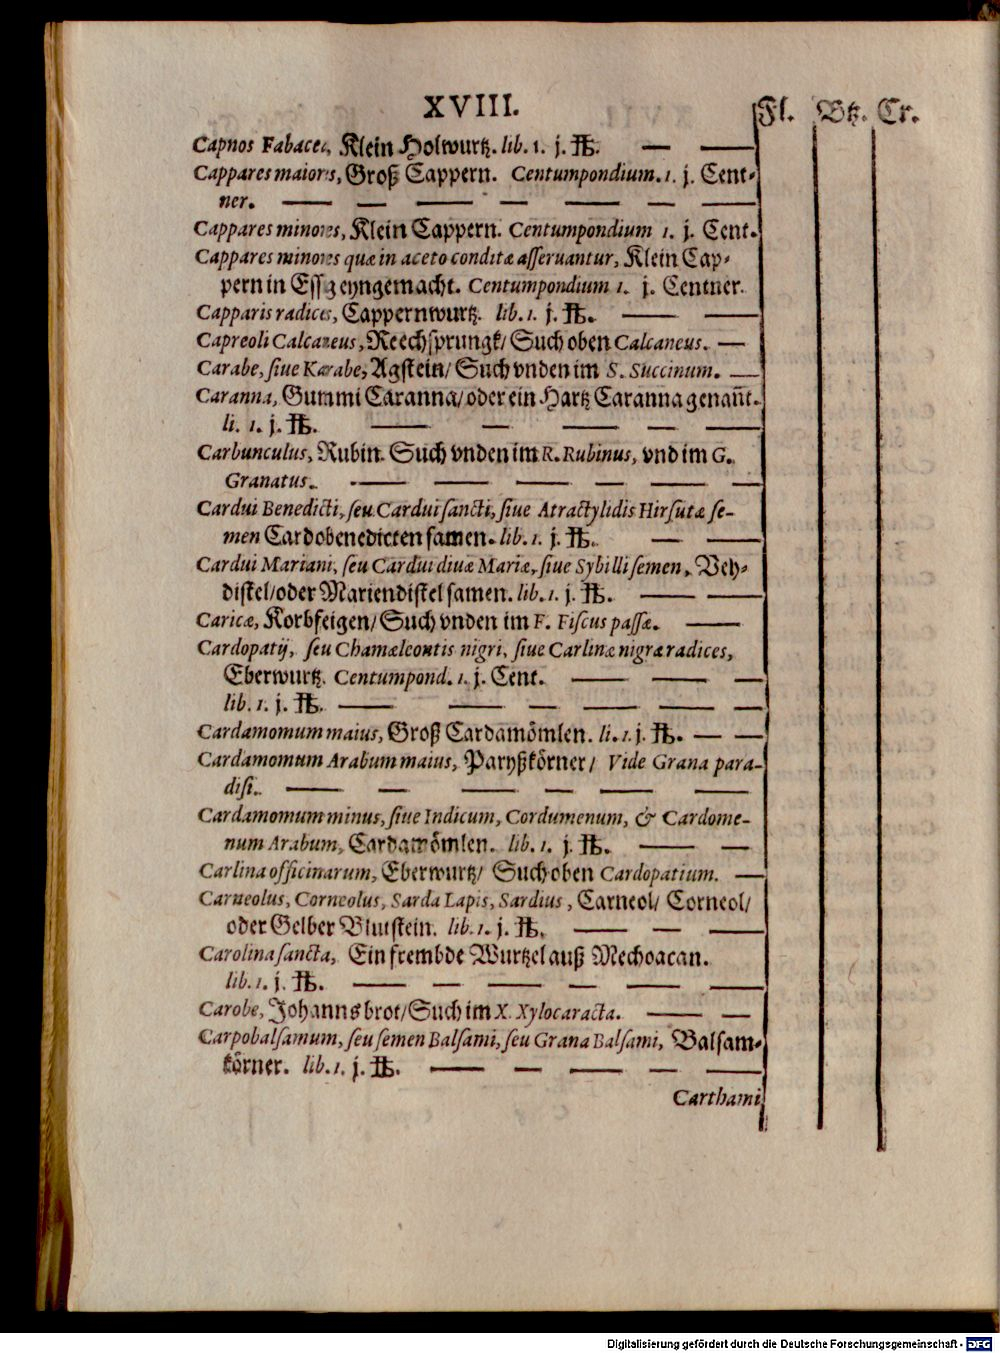 XVIII.
Fl. Btz. Cr.
Capnos Fabacea, Klein Holwurtz. lib. 1. j. ℔. — —
Cappares maiores, Groß Cappern. Centumpondium. 1. j. Cent-
ner. — — — — — — —
Cappares minores, Klein Cappern. Centumpondium 1. j. Cent.
Cappares minores quæ in aceto conditæ asseruantur, Klein Cap-
pern in Essg eyngemacht. Centumpondium 1. j. Centner.
Capparis radices, Cappernwurtz. lib. 1. j. ℔. — —
Capreoli Calcaneus, Reechsprungk/ Such oben Calcaneus. —
Carabe, siue Karabe, Agstein/ Such vnden im S. Succinum. —
Caranna, Gummi Caranna/ oder ein Hartz Caranna genañt.
li. 1. j. ℔. — — — — —
Carbunculus, Rubin. Such vnden im R. Rubinus, vnd im G.
Granatus. — — — — — —
Cardui Benedicti, seu Cardui sancti, siue Atractylidis Hirsutæ se-
men Cardobenedicten samen. lib. 1. j. ℔. — —
Cardui Mariani, seu Cardui diuæ Mariæ, siue Sybilli semen, Veh-
distel/ oder Mariendistel samen. lib. 1. j. ℔. — —
Caricæ, Korbfeigen/ Such vnden im F. Fiscus passæ. —
Cardopatij, seu Chamæleontis nigri, siue Carlinæ nigræ radices,
Eberwurtz. Centumpond. 1. j. Cent. — — —
lib. 1. j. ℔. — — — — — — —
Cardamomum maius, Groß Cardamömlen. li. 1. j. ℔. — —
Cardamomum Arabum maius, Paryßkörner/ Vide Grana para-
disi. — — — — — —
Cardamomum minus, siue Indicum, Cordumenum, & Cardome-
num Arabum, Cardamömlen. lib. 1. j. ℔. — —
Carlina officinarum, Eberwurtz/ Such oben Cardopatium. —
Carneolus, Corneolus, Sarda Lapis, Sardius, Carneol/ Corneol/
oder Gelber Blutstein. lib. 1. j. ℔. — — —
Carolina sancta, Ein frembde Wurtzel auß Mechoacan.
lib. 1. j. ℔. — — — — — —
Carobe, Johannsbrot/ Such im X. Xylocaracta. — —
Carpobalsamum, seu semen Balsami, seu Grana Balsami, Balsam-
körner. lib. 1. j. ℔. — — — — —
Carthami
Digitalisierung gefördert durch die Deutsche Forschungsgemeinschaft - DFG